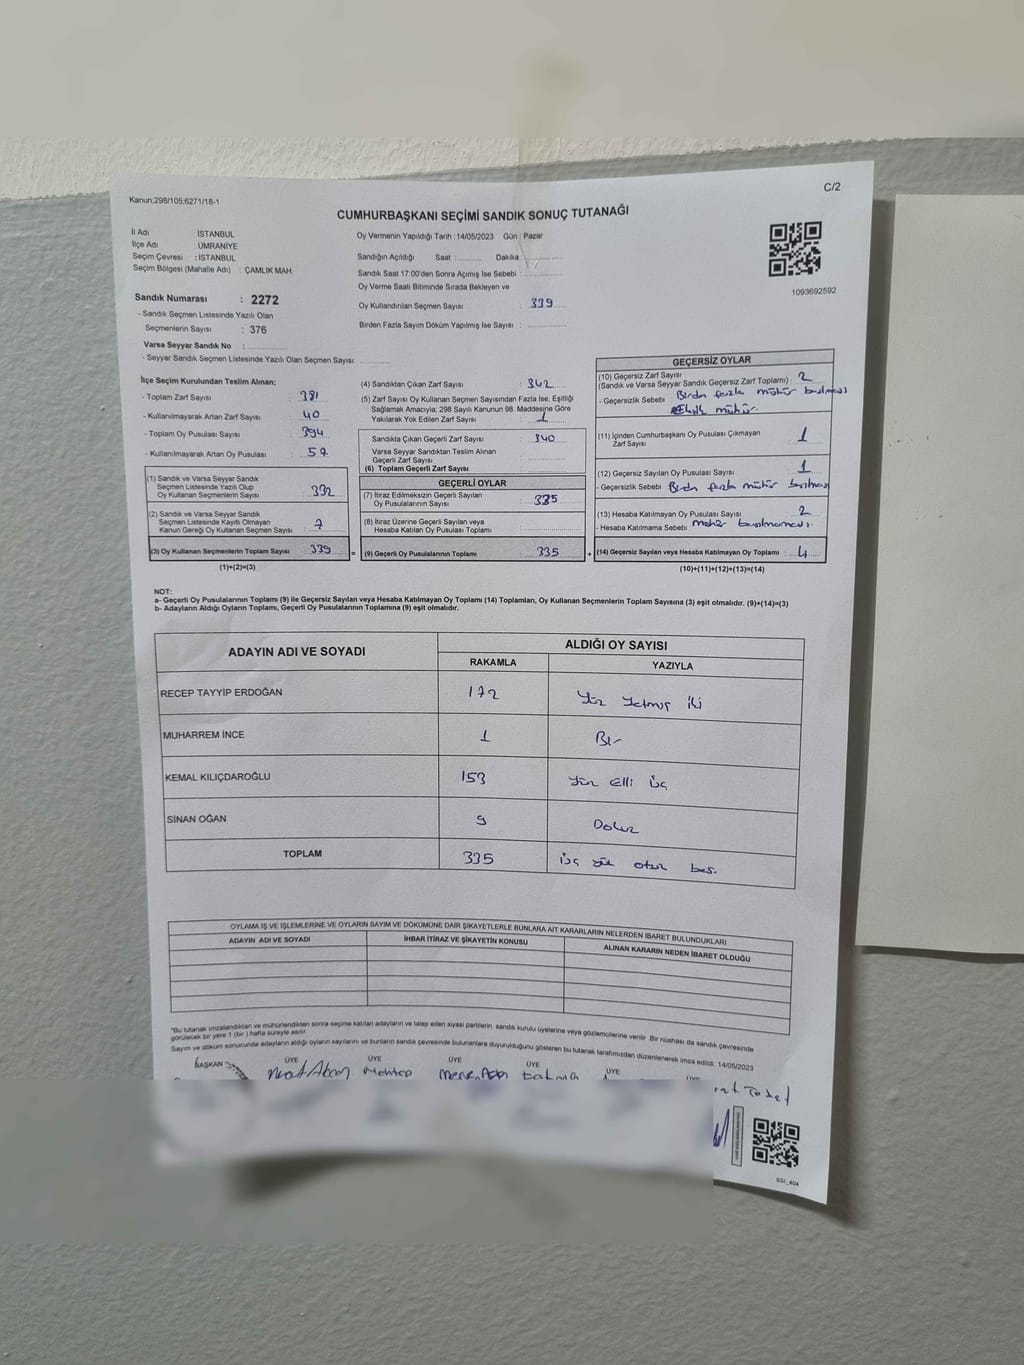 Kanun;298/105;6271/18-1
C/2
CUMHURBAŞKANI SEÇİMİ SANDIK SONUÇ TUTANAĞI
İl Adı : İSTANBUL
İlçe Adı : ÜMRANİYE
Seçim Çevresi : İSTANBUL
Seçim Bölgesi (Mahalle Adı) : ÇAMLIK MAH.
Sandık Numarası : 2272
- Sandık Seçmen Listesinde Yazılı Olan
Seçmenlerin Sayısı : 376
Varsa Seyyar Sandık No :
- Seyyar Sandık Seçmen Listesinde Yazılı Olan Seçmen Sayısı:
Oy Vermenin Yapıldığı Tarih : 14/05/2023 Gün : Pazar
Sandığın Açıldığı Saat : Dakika
Sandık Saat 17:00'den Sonra Açılmış İse Sebebi :
Oy Verme Saati Bitiminde Sırada Bekleyen ve
Oy Kullandırılan Seçmen Sayısı : 339
Birden Fazla Sayım Döküm Yapılmış İse Sayısı :
1093692592
İlçe Seçim Kurulundan Teslim Alınan;
- Toplam Zarf Sayısı : 381
- Kullanılmayarak Artan Zarf Sayısı : 40
- Toplam Oy Pusulası Sayısı : 394
- Kullanılmayarak Artan Oy Pusulası : 57
(1) Sandık ve Varsa Seyyar Sandık
Seçmen Listesinde Yazılı Olup
Oy Kullanan Seçmenlerin Sayısı : 332
(2) Sandık ve Varsa Seyyar Sandık
Seçmen Listesinde Kayıtlı Olmayan
Kanun Gereği Oy Kullanan Seçmen Sayısı : 7
(3) Oy Kullanan Seçmenlerin Toplam Sayısı : 339
(1)+(2)=(3)
=
(4) Sandıktan Çıkan Zarf Sayısı : 342
(5) Zarf Sayısı Oy Kullanan Seçmen Sayısından Fazla İse, Eşitliği
Sağlamak Amacıyla; 298 Sayılı Kanunun 98. Maddesine Göre
Yakılarak Yok Edilen Zarf Sayısı : 1
Sandıkta Çıkan Geçerli Zarf Sayısı : 340
Varsa Seyyar Sandıktan Teslim Alınan
Geçerli Zarf Sayısı
(6) Toplam Geçerli Zarf Sayısı
GEÇERLİ OYLAR
(7) İtiraz Edilmeksizin Geçerli Sayılan
Oy Pusulalarının Sayısı : 335
(8) İtiraz Üzerine Geçerli Sayılan veya
Hesaba Katılan Oy Pusulası Toplamı
(9) Geçerli Oy Pusulalarının Toplamı : 335
+
GEÇERSİZ OYLAR
(10) Geçersiz Zarf Sayısı
(Sandık ve Varsa Seyyar Sandık Geçersiz Zarf Toplamı) : 2
- Geçersizlik Sebebi : Birden fazla mühür bulması
Eksik mühür.
(11) İçinden Cumhurbaşkanı Oy Pusulası Çıkmayan
Zarf Sayısı : 1
(12) Geçersiz Sayılan Oy Pusulası Sayısı : 1
- Geçersizlik Sebebi : Birden fazla mühür
(13) Hesaba Katılmayan Oy Pusulası Sayısı : 2
- Hesaba Katılmama Sebebi : mühür bulunmaması.
(14) Geçersiz Sayılan veya Hesaba Katılmayan Oy Toplamı : 4
(10)+(11)+(12)+(13)=(14)
NOT:
a- Geçerli Oy Pusulalarının Toplamı (9) ile Geçersiz Sayılan veya Hesaba Katılmayan Oy Toplamı (14) Toplamları, Oy Kullanan Seçmenlerin Toplam Sayısına (3) eşit olmalıdır. (9)+(14)=(3)
b- Adayların Aldığı Oyların Toplamı, Geçerli Oy Pusulalarının Toplamına (9) eşit olmalıdır.
ADAYIN ADI VE SOYADI
ALDIĞI OY SAYISI
RAKAMLA YAZIYLA
RECEP TAYYİP ERDOĞAN 172 Yüz Yetmiş İki
MUHARREM İNCE 1 Bir
KEMAL KILIÇDAROĞLU 153 Yüz Elli Üç
SİNAN OĞAN 9 Dokuz
TOPLAM 335 Üç yüz otuz beş.
OYLAMA İŞ VE İŞLEMLERİNE VE OYLARIN SAYIM VE DÖKÜMÜNE DAİR ŞİKAYETLERLE BUNLARA AİT KARARLARIN NELERDEN İBARET BULUNDUKLARI
ADAYIN ADI VE SOYADI İHBAR İTİRAZ VE ŞİKAYETİN KONUSU ALINAN KARARIN NEDEN İBARET OLDUĞU
*Bu tutanak imzalandıktan ve mühürlendikten sonra seçime katılan adayların ve talep eden siyasi partilerin sandık kurulu üyelerine veya gözlemcilerine verilir. Bir nüshası da sandık çevresinde
görülecek bir yere 1 (bir ) hafta süreyle asılır.
Sayım ve döküm sonucunda adayların aldığı oyların sayılarını ve bunların sandık çevresinde bulunanlara duyurulduğunu gösteren bu tutanak tarafımızdan düzenlenerek imza edildi. 14/05/2023
BAŞKAN ÜYE ÜYE ÜYE ÜYE ÜYE
SSI_404